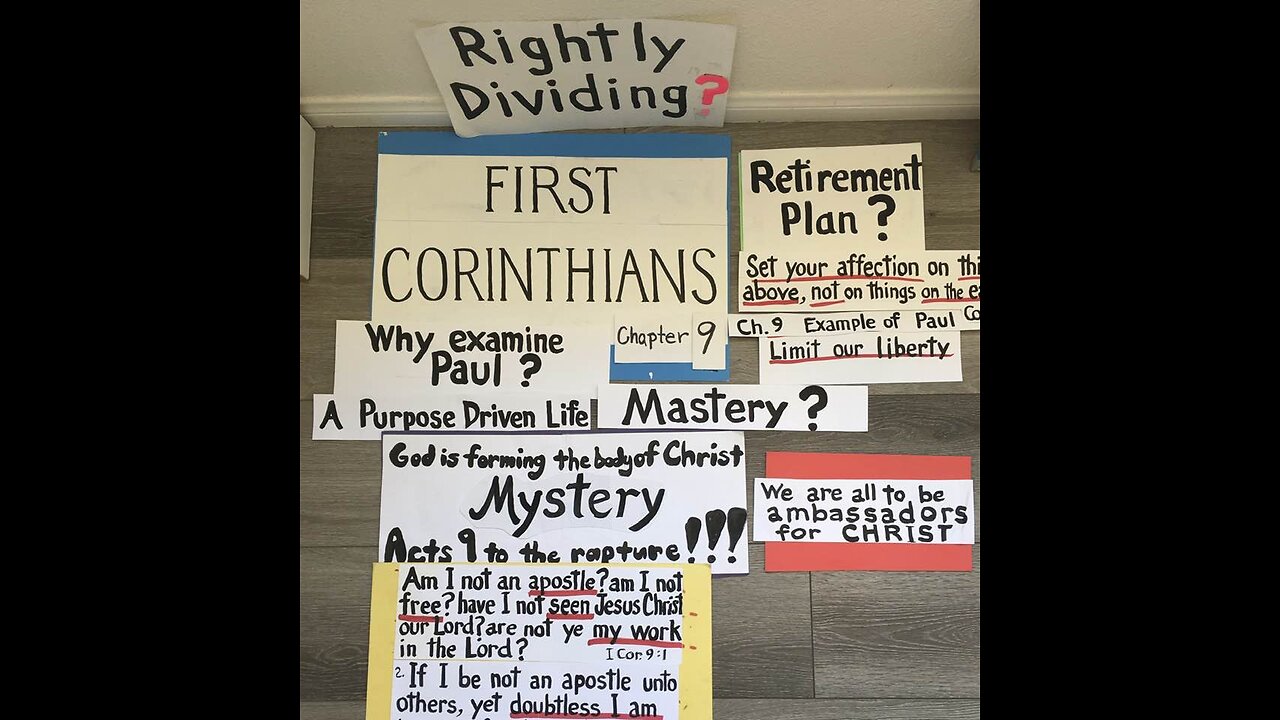 Rightly
Dividing?
FIRST
CORINTHIANS
Chapter 9
Retirement
Plan?
Set your affection on
above, not on things on the
Ch. 9 Example of Paul
Limit our liberty
Why examine
Paul?
A Purpose Driven Life
Mastery?
God is forming the body of Christ
Mystery
Acts 9 to the rapture!!!
We are all to be
ambassadors
for CHRIST
Am I not an apostle? am I not
free? have I not seen Jesus Christ
our Lord? are not ye my work
in the Lord?
I Cor. 9:1
2. If I be not an apostle unto
others, yet doubtless I am